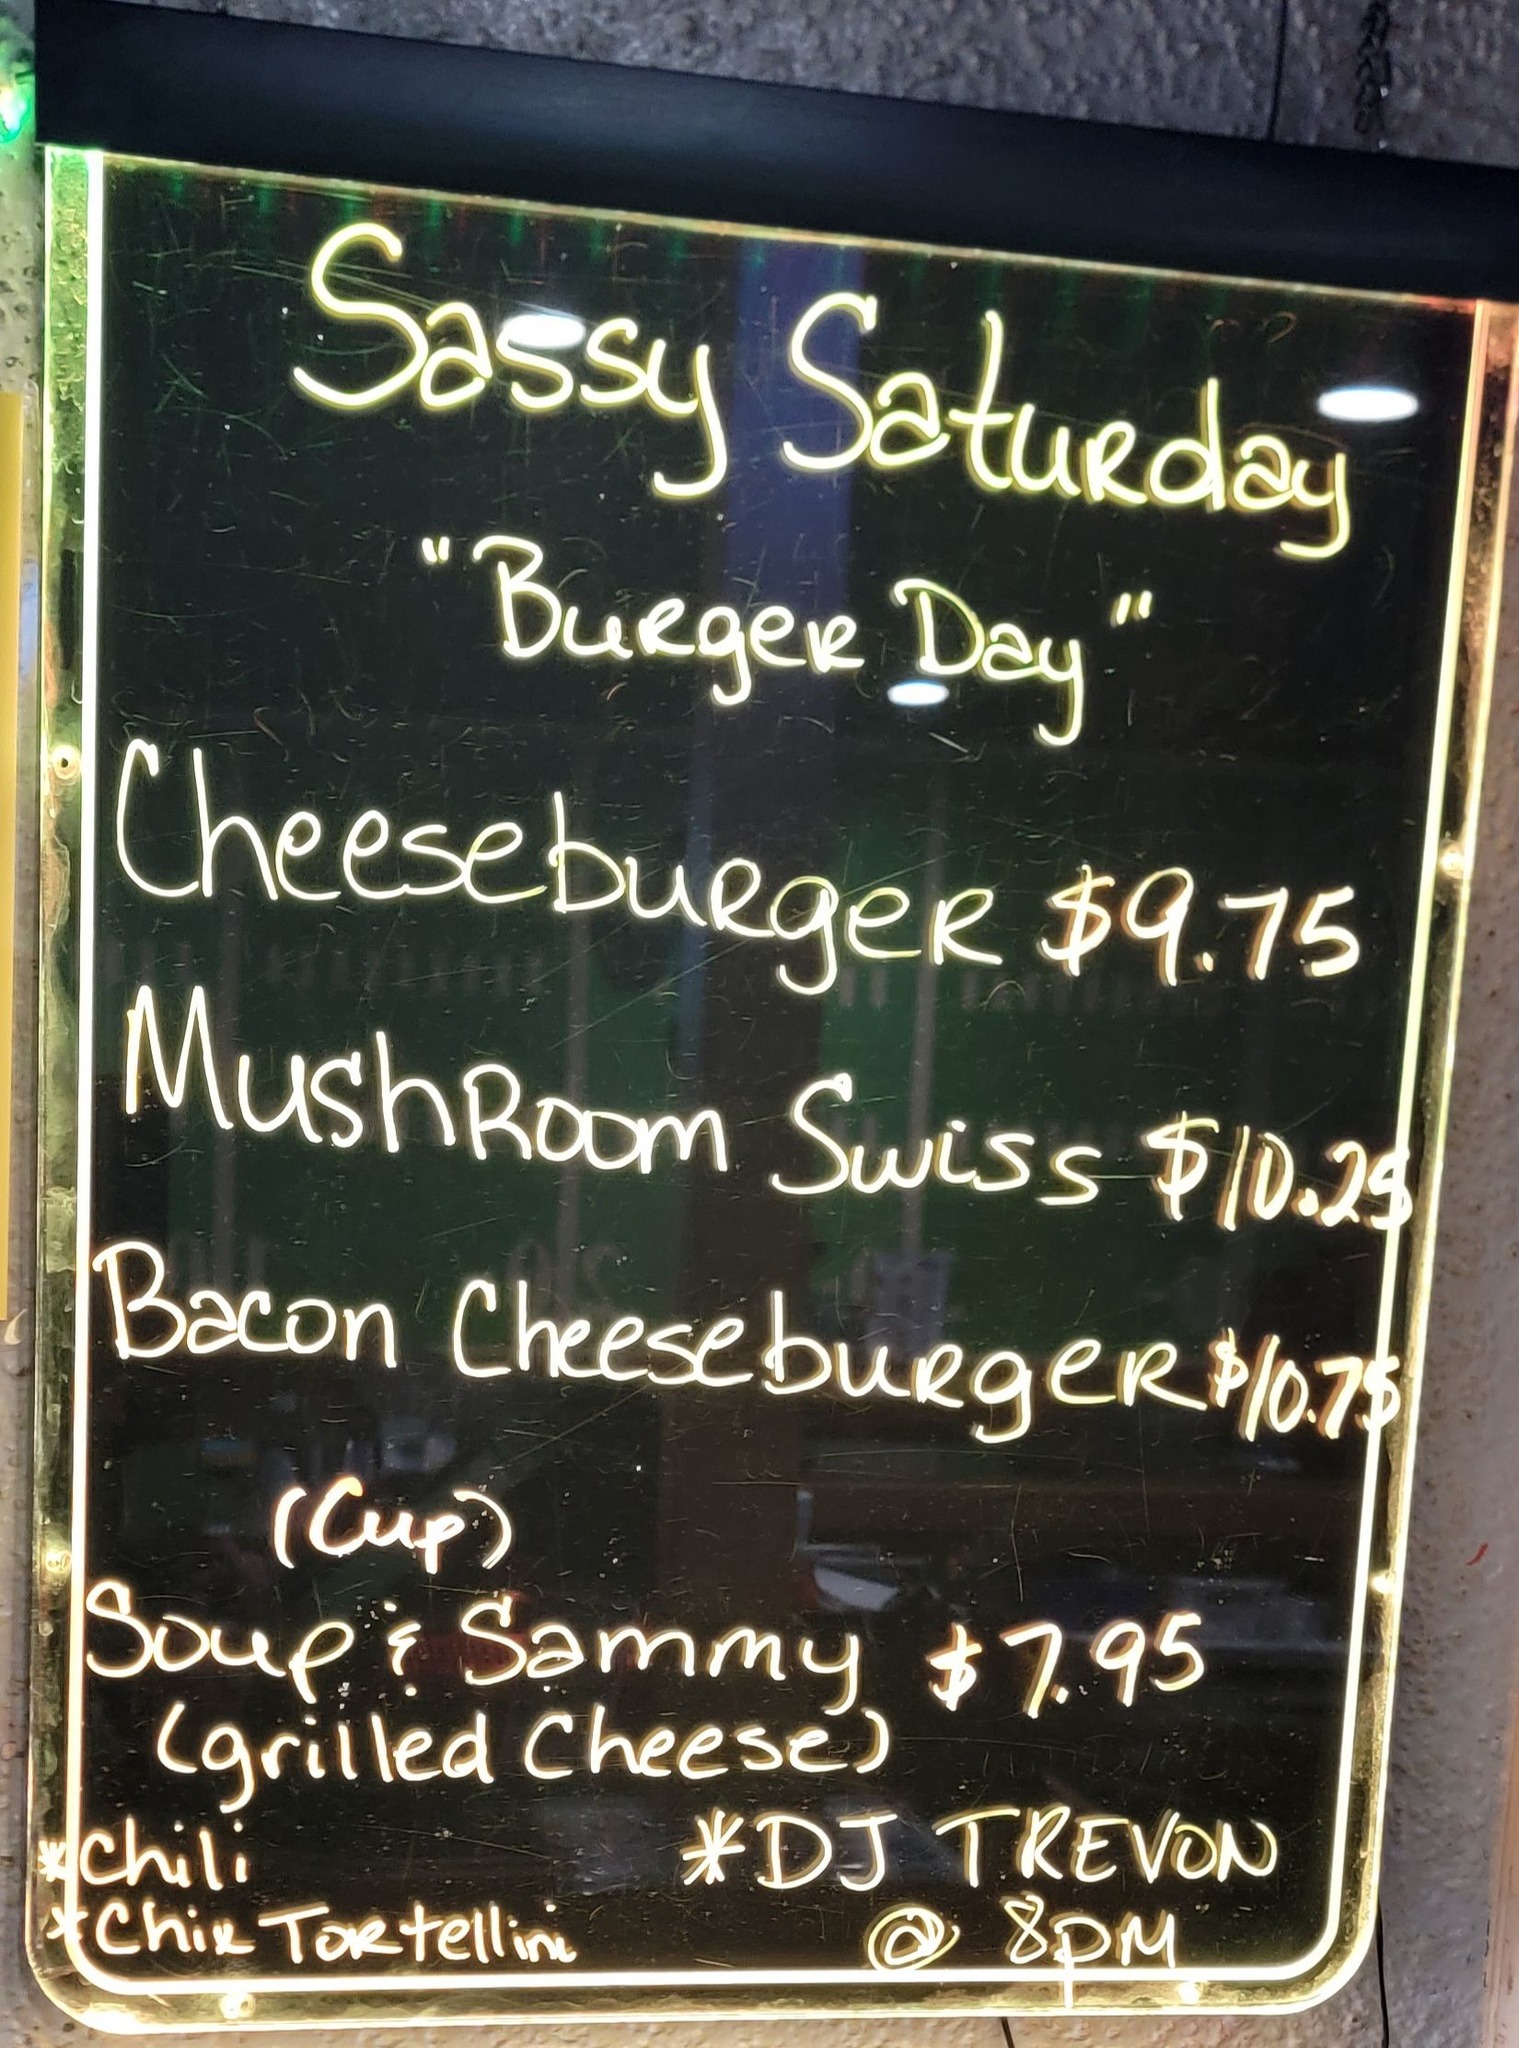 Sassy Saturday
"Burger Day"
Cheeseburger $9.75
Mushroom Swiss $10.25
Bacon Cheeseburger $10.75
(Cup)
Soup & Sammy $7.95
(grilled Cheese)
*Chili
*Chix Tortellini
*DJ TREVON
@ 8pM